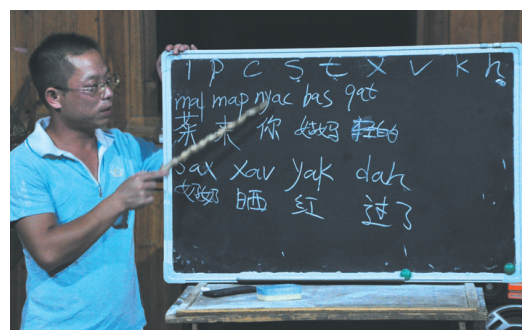 l p c s t x v k h
mal map nyac bas qat
菜 来 你 姑妈
sax xav yak dah
奶奶 晒 红 过了